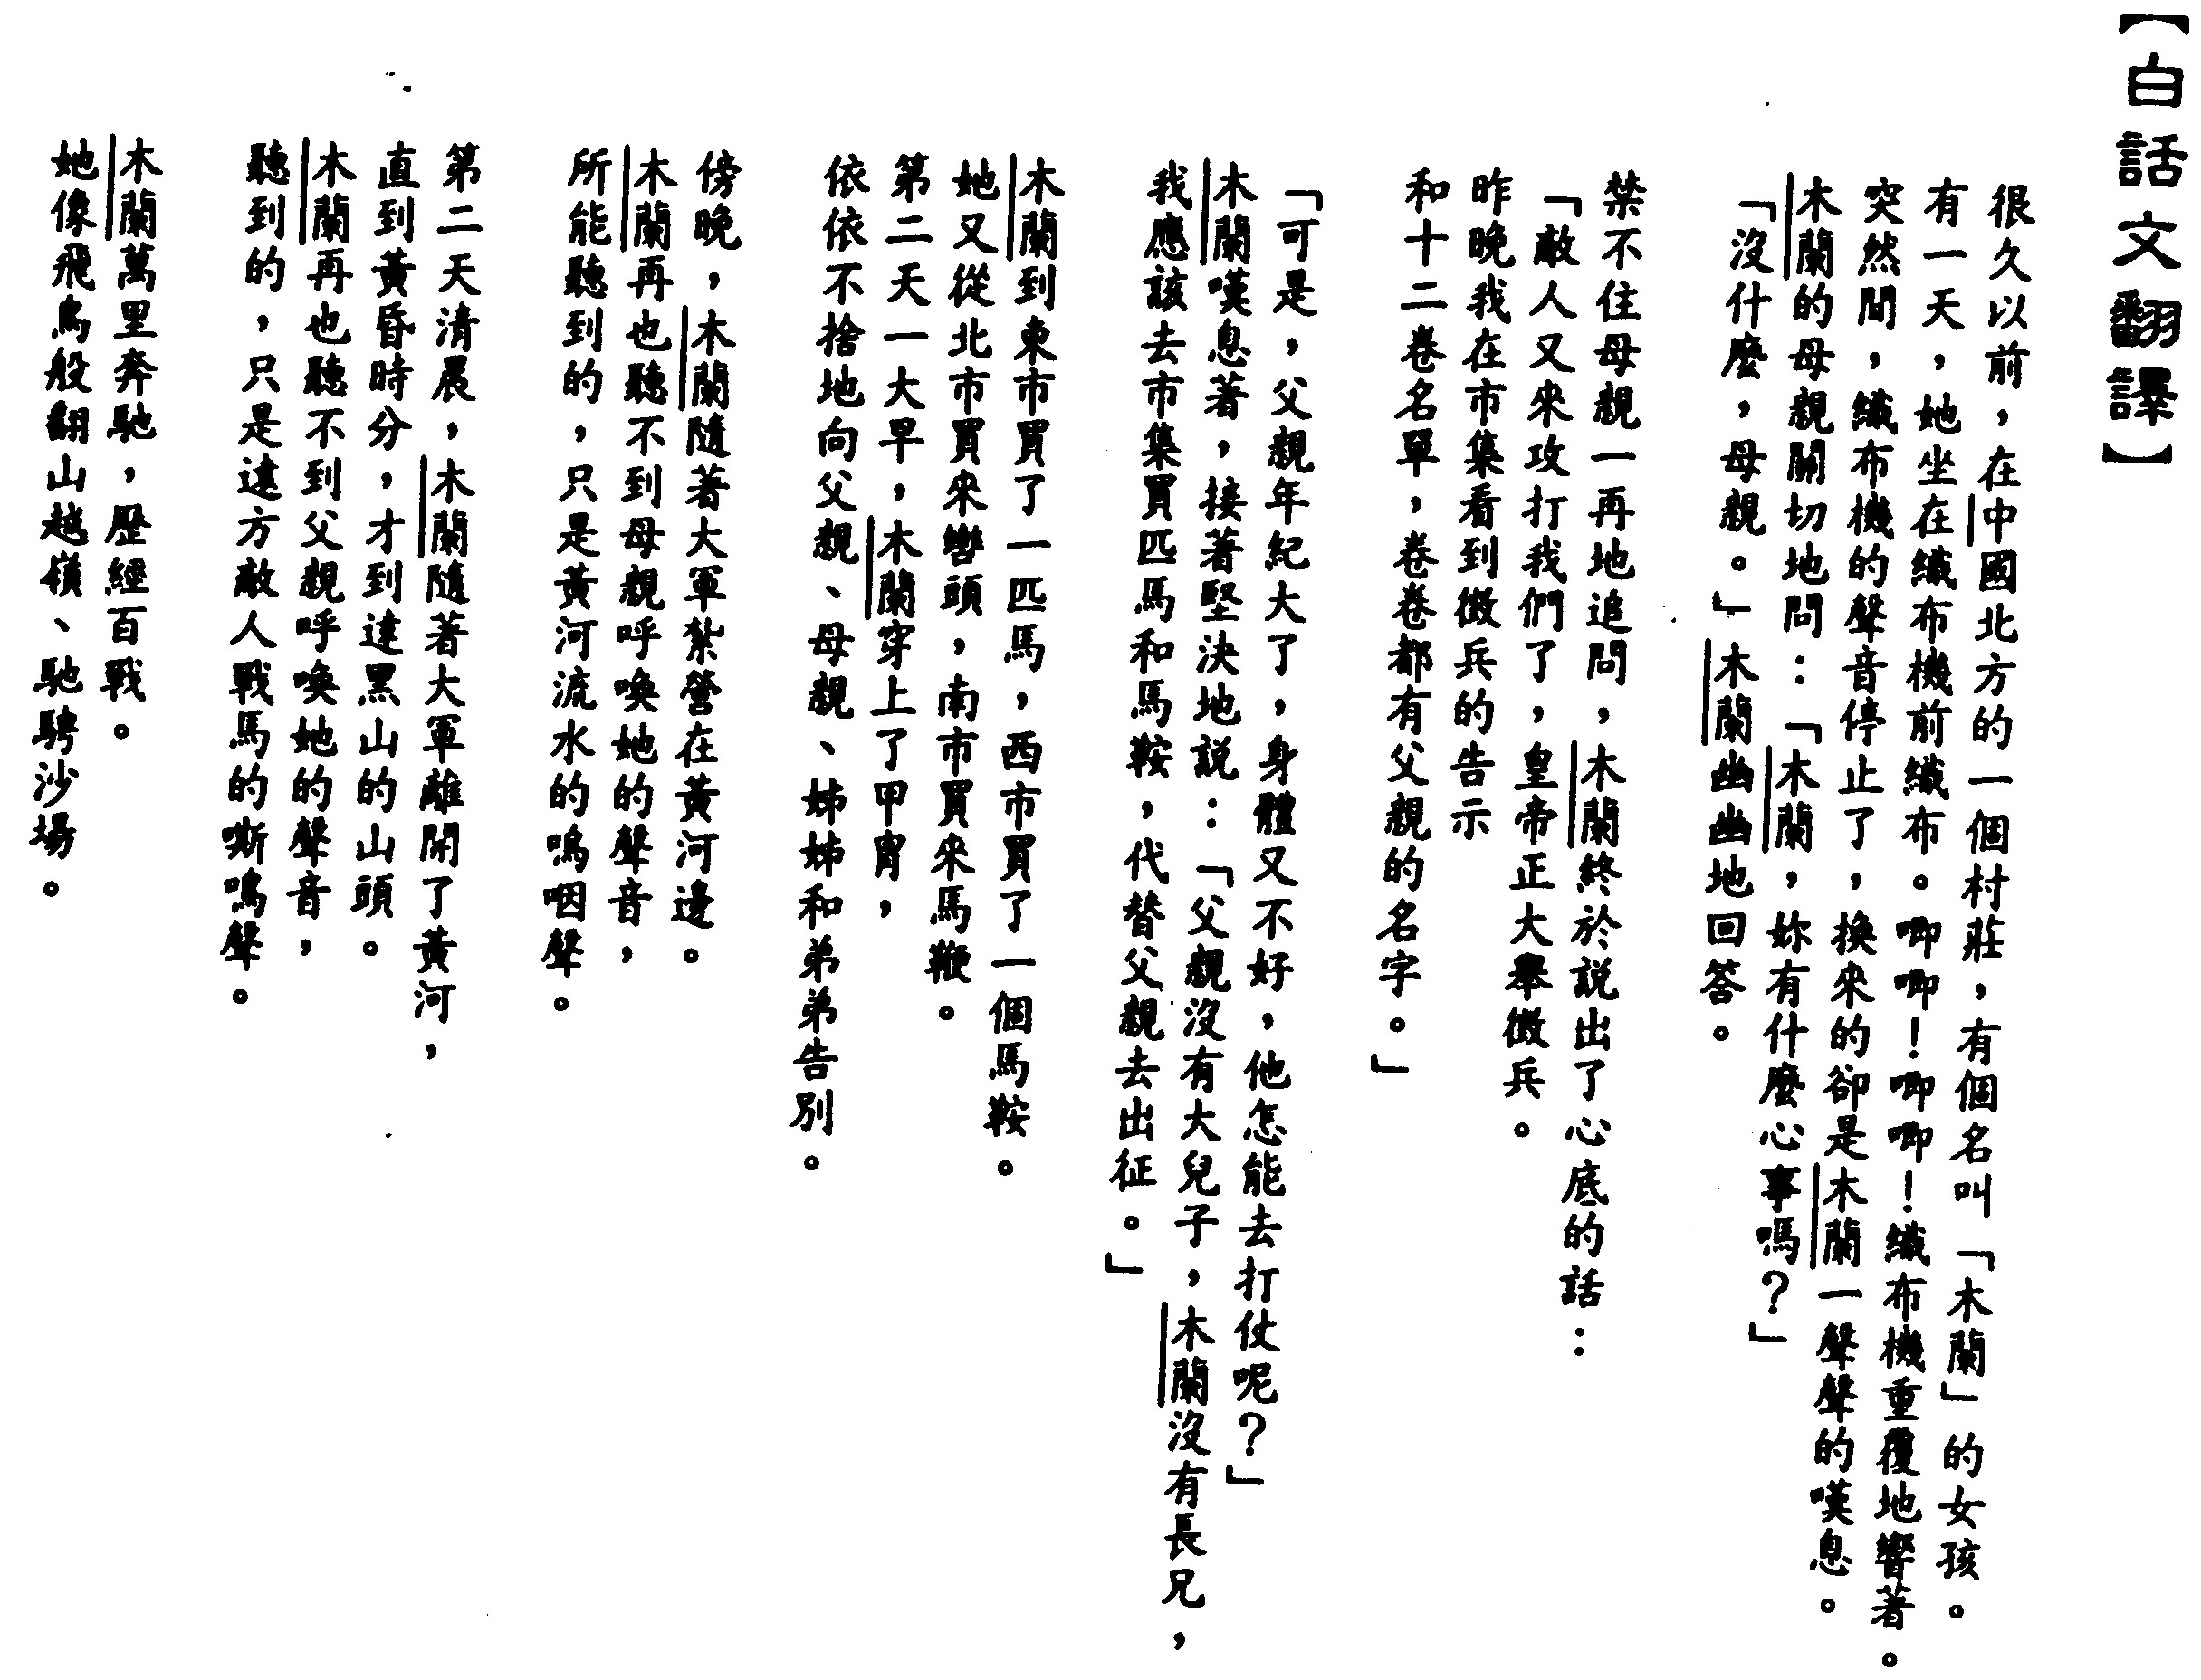 【白話文翻譯】
很久以前，在中國北方的一個村莊，有個名叫「木蘭」的女孩。
有一天，她坐在織布機前織布。唧唧！唧唧！織布機重覆地響著。
突然間，織布機的聲音停止了，換來的卻是木蘭一聲聲的嘆息。
木蘭的母親關切地問：「木蘭，妳有什麼心事嗎？」
「沒什麼，母親。」木蘭幽幽地回答。
禁不住母親一再地追問，木蘭終於說出了心底的話：
「敵人又來攻打我們了，皇帝正大舉徵兵。
昨晚我在市集看到徵兵的告示
和十二卷名單，卷卷都有父親的名字。」
「可是，父親年紀大了，身體又不好，他怎能去打仗呢？」
木蘭嘆息著，接著堅決地說：「父親沒有大兒子，木蘭沒有長兄，
我應該去市集買匹馬和馬鞍，代替父親去出征。」
木蘭到東市買了一匹馬，西市買了一個馬鞍。
她又從北市買來轡頭，南市買來馬鞭。
第二天一大早，木蘭穿上了甲冑，
依依不捨地向父親、母親、姊姊和弟弟告別。
傍晚，木蘭隨著大軍紮營在黃河邊。
木蘭再也聽不到母親呼喚她的聲音，
所能聽到的，只是黃河流水的嗚咽聲。
第二天清晨，木蘭隨著大軍離開了黃河，
直到黃昏時分，才到達黑山的山頭。
木蘭再也聽不到父親呼喚她的聲音，
聽到的，只是遠方敵人戰馬的嘶鳴聲。
木蘭萬里奔馳，歷經百戰。
她像飛鳥般翻山越嶺、馳騁沙場。